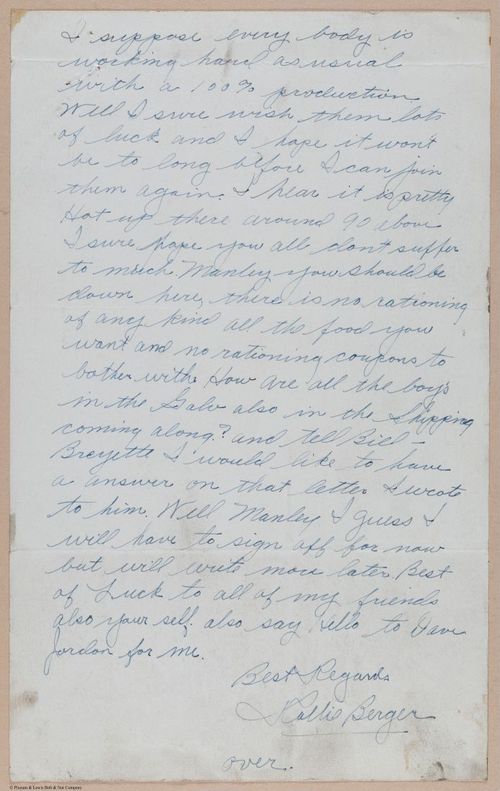 I suppose every body is
working hard as usual
with a 100% production
Well I sure wish them lots
of luck and I hope it won't
be to long before I can join
them again. I hear it is pretty
Hot up there around 90 above
I sure hope you all don't suffer
to much, Manley you should be
down here, there is no rationing
of any kind all the food you
want and no rationing coupons to
bother with. How are all the boys
in the Galv also in the Shipping
coming along? and tell Bill -
Breyette I would like to have
a answer on that letter I wrote
to him. Well Manley I guess I
will have to sign off for now
but will write more later. Best
of Luck to all of my friends
also your self. also say hello to Dave
Jordon for me.
Best Regards
Rollie Berger
over.
© Pioneers & Lewis Bolt & Nut Company